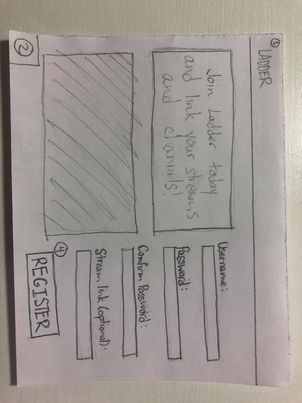 ① LADDER
Join Ladder today
and link your streams
and channels!
Username:
Password:
Confirm Password:
Stream link (optional):
④
REGISTER
②